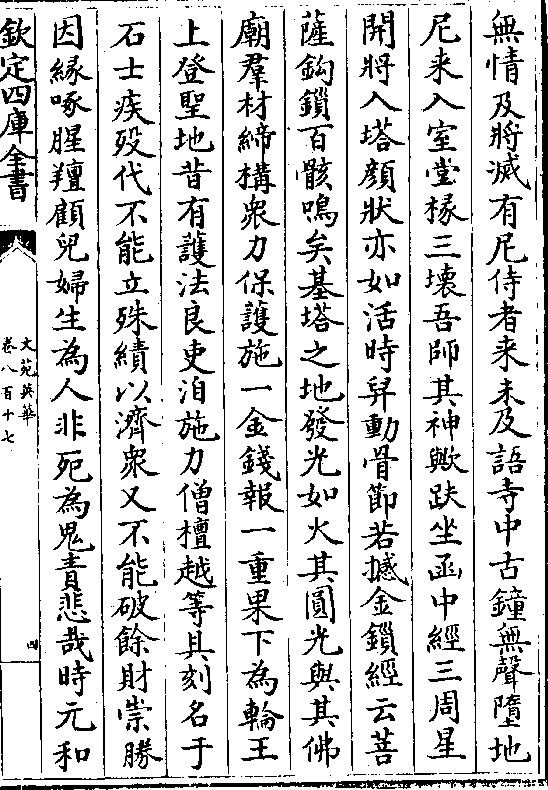 無情及將滅有尼侍者来未及語寺中古鐘無聲墮地
尼来入室堂椽三壊吾師其神歟趺坐函中經三周星
開將入塔顔狀亦如活時舁動骨節若撼金鎖經云菩
薩鈎鎖百骸鳴矣基塔之地發光如火其圓光與其佛
廟羣材締構衆力保護施一金錢報一重果下為輪王
上登聖地昔有護法良吏洎施力僧檀越等具刻名于
石士疾殁代不能立殊績以濟衆又不能破餘財崇勝
因縁啄腥羶顧兒婦生為人非死為鬼責悲哉時元和
欽定四庫全書
文苑英華
卷八百十七
四